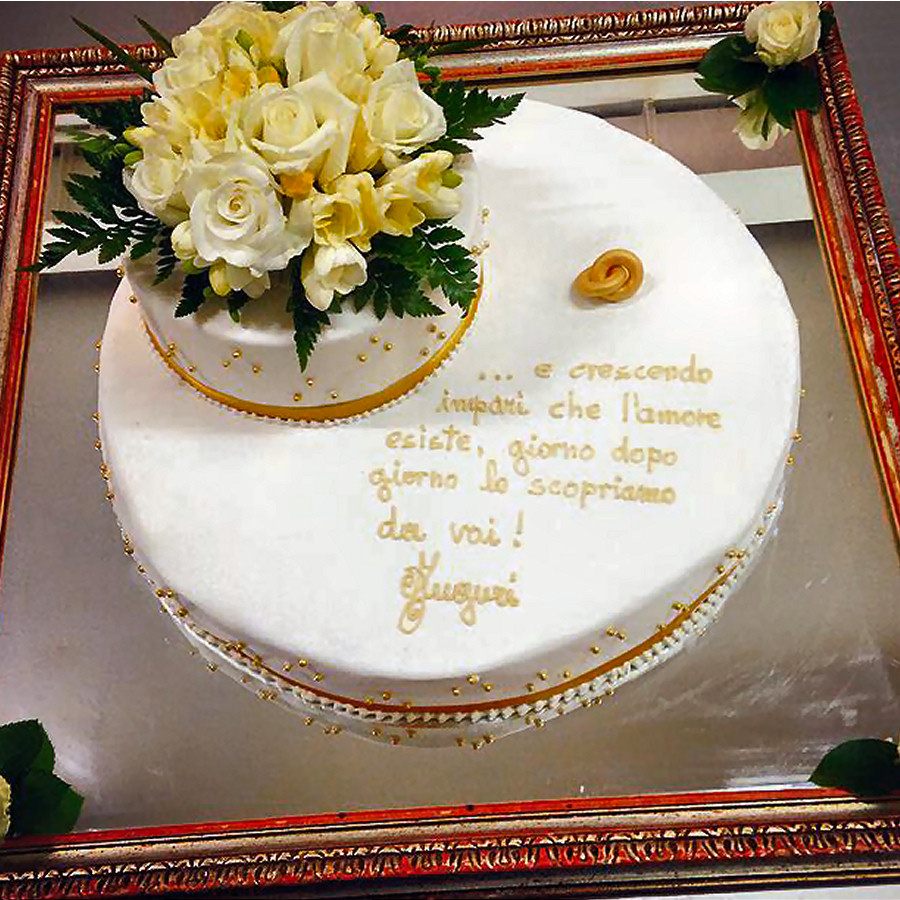 ... e crescendo
impari che l'amore
esiste, giorno dopo
giorno lo scopriamo
da voi!
Auguri